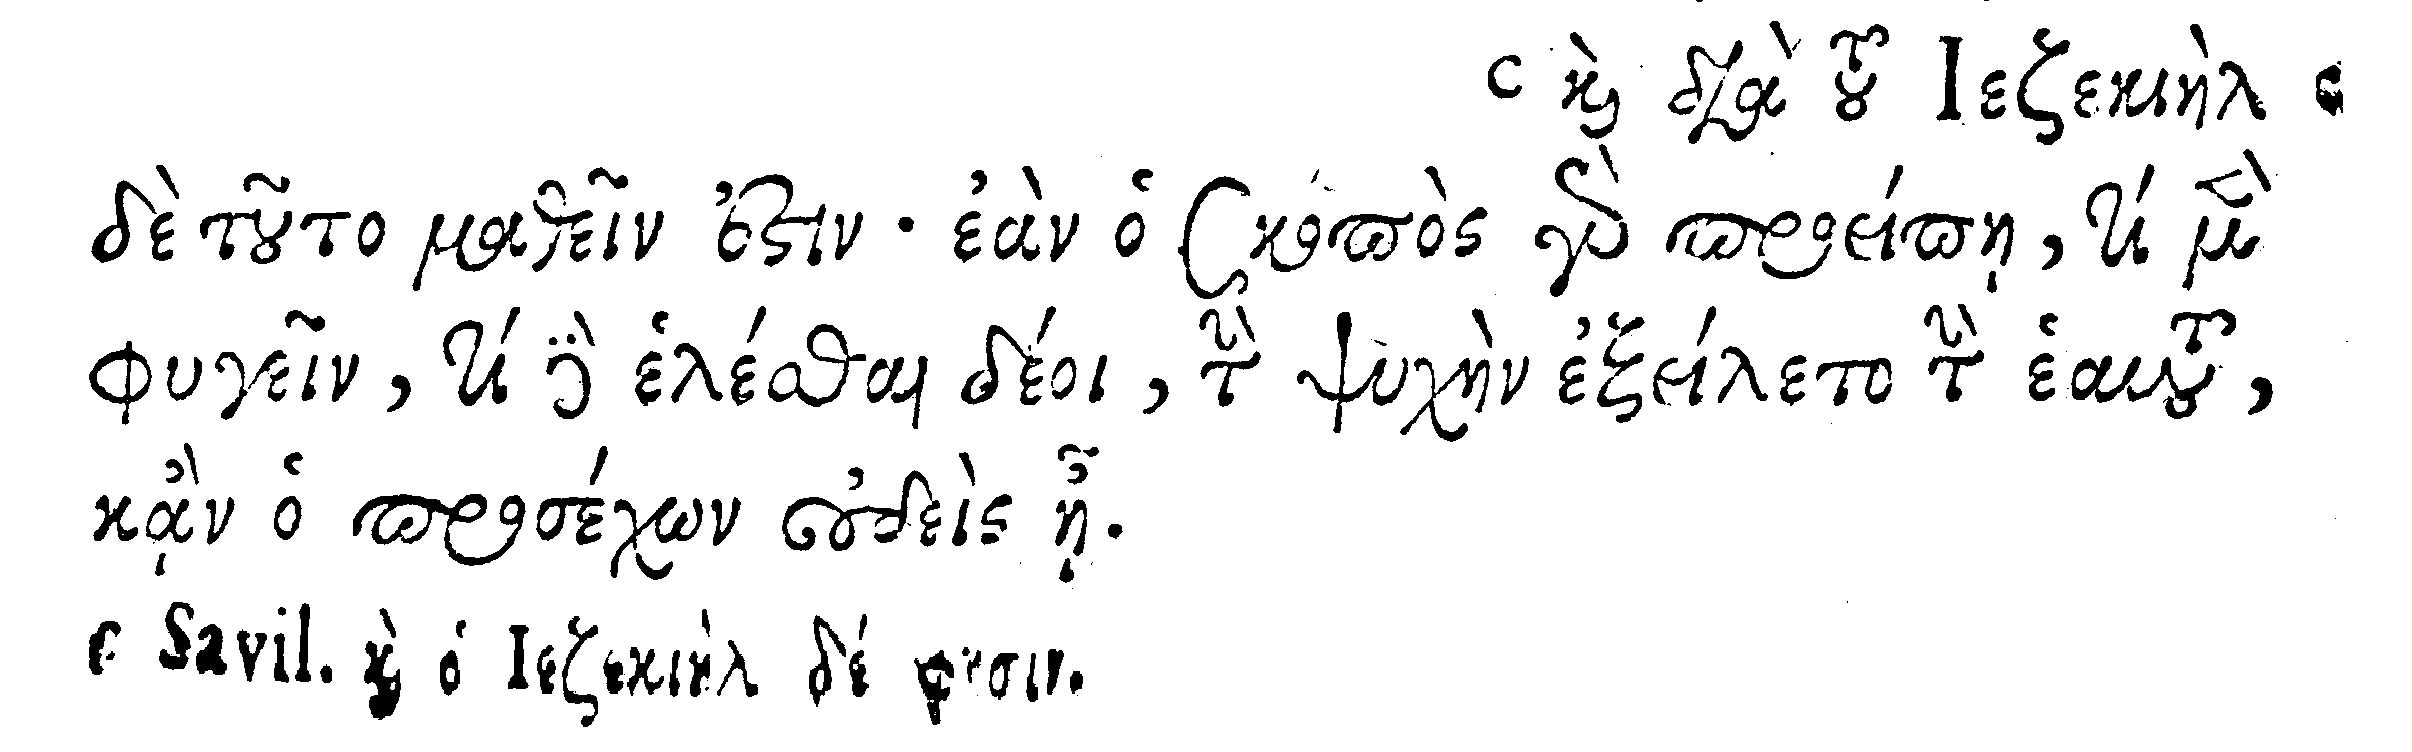 c καὶ διὰ τοῦ Ἰεζεκιὴλ c
δὲ τοῦτο μαθεῖν ἔστιν· ἐὰν ὁ σκοπὸς γὰρ προείπῃ, τί μὲν
φυγεῖν, τί δὲ ἑλέσθαι δέοι, τὴν ψυχὴν ἐξείλετο τὴν ἑαυτοῦ,
κᾂν ὁ προσέχων οὐδεὶς ᾖ.
c Savil. καὶ ὁ Ιεζεκιὴλ δέ φησιν.